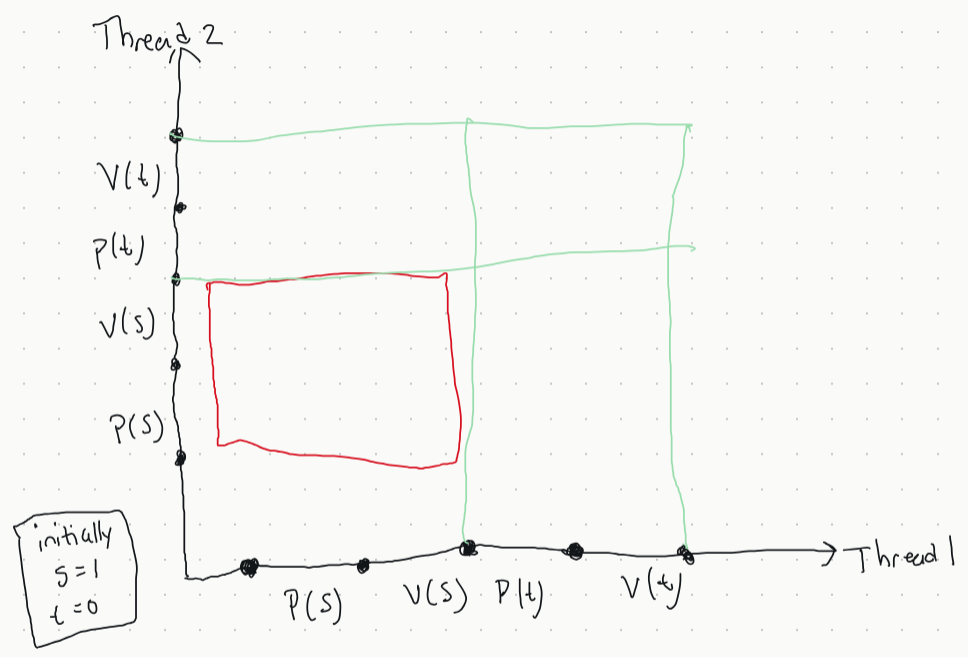 Thread 2
V(t)
P(t)
V(s)
P(s)
initially
s=1
t=0
P(s) V(s) P(t) V(t) Thread 1